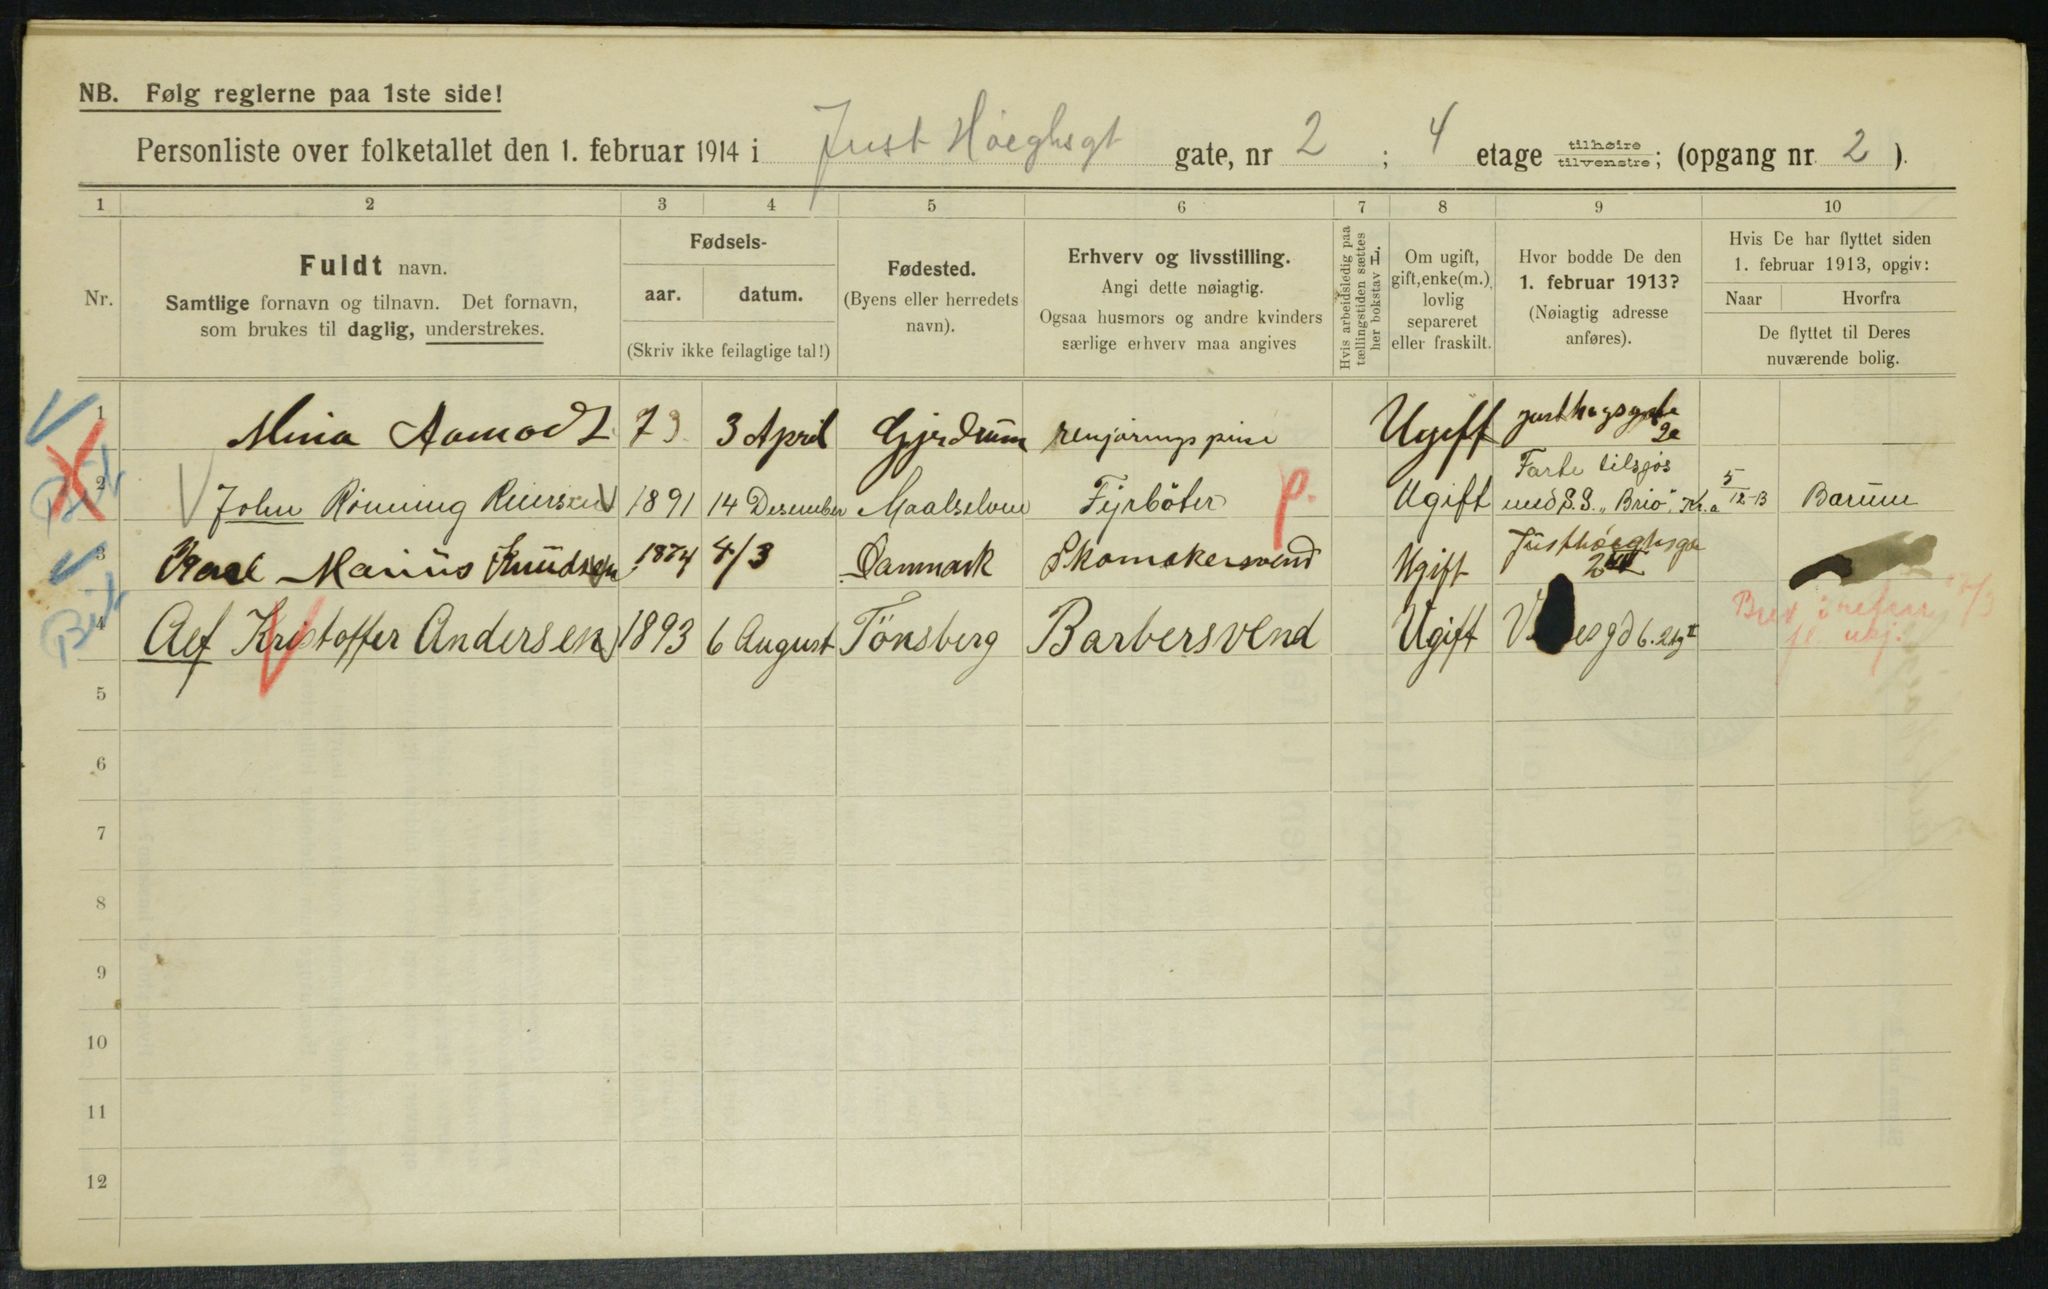 NB. Følg reglerne paa 1ste side!
Personliste over folketallet den 1. februar 1914 i Just Høeghsgt gate, nr 2 ; 4 etage tilhøire/tilvenstre; (opgang nr. 2 ).
1 2 3 4 5 6 7 8 9 10
Nr.
Fuldt navn.
Samtlige fornavn og tilnavn. Det fornavn,
som brukes til daglig, understrekes.
Fødsels-
aar. datum.
(Skriv ikke feilagtige tal!)
Fødested.
(Byens eller herredets
navn).
Erhverv og livsstilling.
Angi dette nøiagtig.
Ogsaa husmors og andre kvinders
særlige erhverv maa angives
Hvis arbeidsledig paa
tællingstiden sættes
her bokstav L.
Om ugift,
gift, enke(m.),
lovlig
separeret
eller fraskilt.
Hvor bodde De den
1. februar 1913?
(Nøiagtig adresse
anføres).
Hvis De har flyttet siden
1. februar 1913, opgiv:
Naar Hvorfra
De flyttet til Deres
nuværende bolig.
1 Mina Aamodt 73 3 April Gjerdrum Ugift 2e
2 John Rönning Reiersen 1891 14 Desember Maalselven Fyrböter p. Ugift Farte tilsjøs
med S.S. "Brio", Kr.a 5/12-13 Barüm
3 Karl Marius Knudsen 1874 4/3 Danmark Skomakersvend Ugift Justhöeghsga
2
4 Alf Kristoffer Andersen 1893 6 August Tönsberg Barbersvend Ugift
Brev
5
6
7
8
9
10
11
12